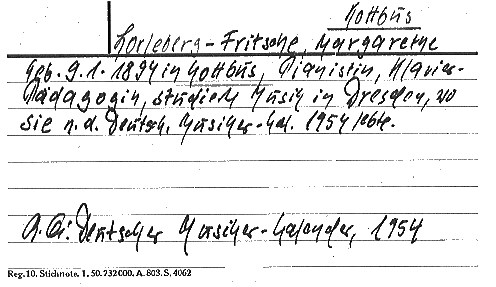 Kottbus
Horleberg-Fritsche, Margarethe
geb. 9.1.1894 in Kottbus, Pianistin, Klavier-
Pädagogin, studiert Musik in Dresden, wo
sie n. d. Deutsch. Musiker-Kal. 1954 lebte.
A. Qu. Deutscher Musiker-Kalender, 1954
Reg. 10. Stichnote. 1. 50. 732000. A. 803. S. 4062